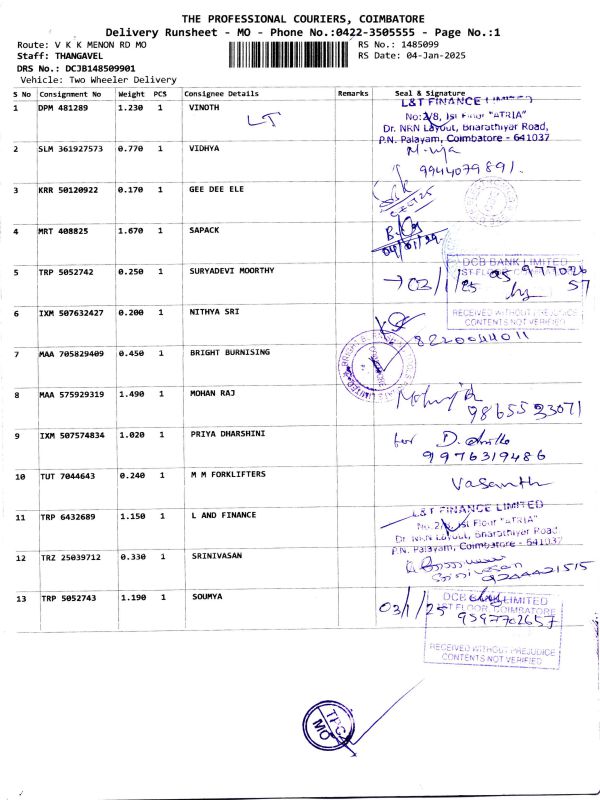 THE PROFESSIONAL COURIERS, COIMBATORE
Delivery Runsheet - MO - Phone No.:0422-3505555 - Page No.:1
Route: V K K MENON RD MO
RS No.: 1485099
Staff: THANGAVEL
RS Date: 04-Jan-2025
DRS No.: DCJB148509901
Vehicle: Two Wheeler Delivery
S No Consignment No Weight PCS Consignee Details Remarks Seal & Signature
1 DPM 481289 1.230 1 VINOTH LT
L&T FINANCE LIMITED
No:2/8, Ist Floor "ATRIA"
Dr. NRN Layout, Bharathiyar Road,
P.N. Palayam, Coimbatore - 641037
2 SLM 361927573 0.770 1 VIDHYA
9944079891.
3 KRR 50120922 0.170 1 GEE DEE ELE
4 MRT 408825 1.670 1 SAPACK
5 TRP 5052742 0.250 1 SURYADEVI MOORTHY
DCB BANK LIMITED
03/1/25
57
RECEIVED WITHOUT PREJUDICE
CONTENTS NOT VERIFIED
6 IXM 507632427 0.200 1 NITHYA SRI
8220044011
7 MAA 705829409 0.450 1 BRIGHT BURNISING
8 MAA 575929319 1.490 1 MOHAN RAJ
9865533071
9 IXM 507574834 1.020 1 PRIYA DHARSHINI
for D.
9976319486
10 TUT 7044643 0.240 1 M M FORKLIFTERS
Vasanth
11 TRP 6432689 1.150 1 L AND FINANCE
L&T FINANCE LIMITED
No:2/8, Ist Floor "ATRIA"
Dr. NRN Layout, Bharathiyar Road
P.N. Palayam, Coimbatore - 641037
12 TRZ 25039712 0.330 1 SRINIVASAN
Srinivasan
13 TRP 5052743 1.190 1 SOUMYA
03/1/25
DCB LIMITED
IST FLOOR, COIMBATORE
9597702657
RECEIVED WITHOUT PREJUDICE
CONTENTS NOT VERIFIED
TPC
MO